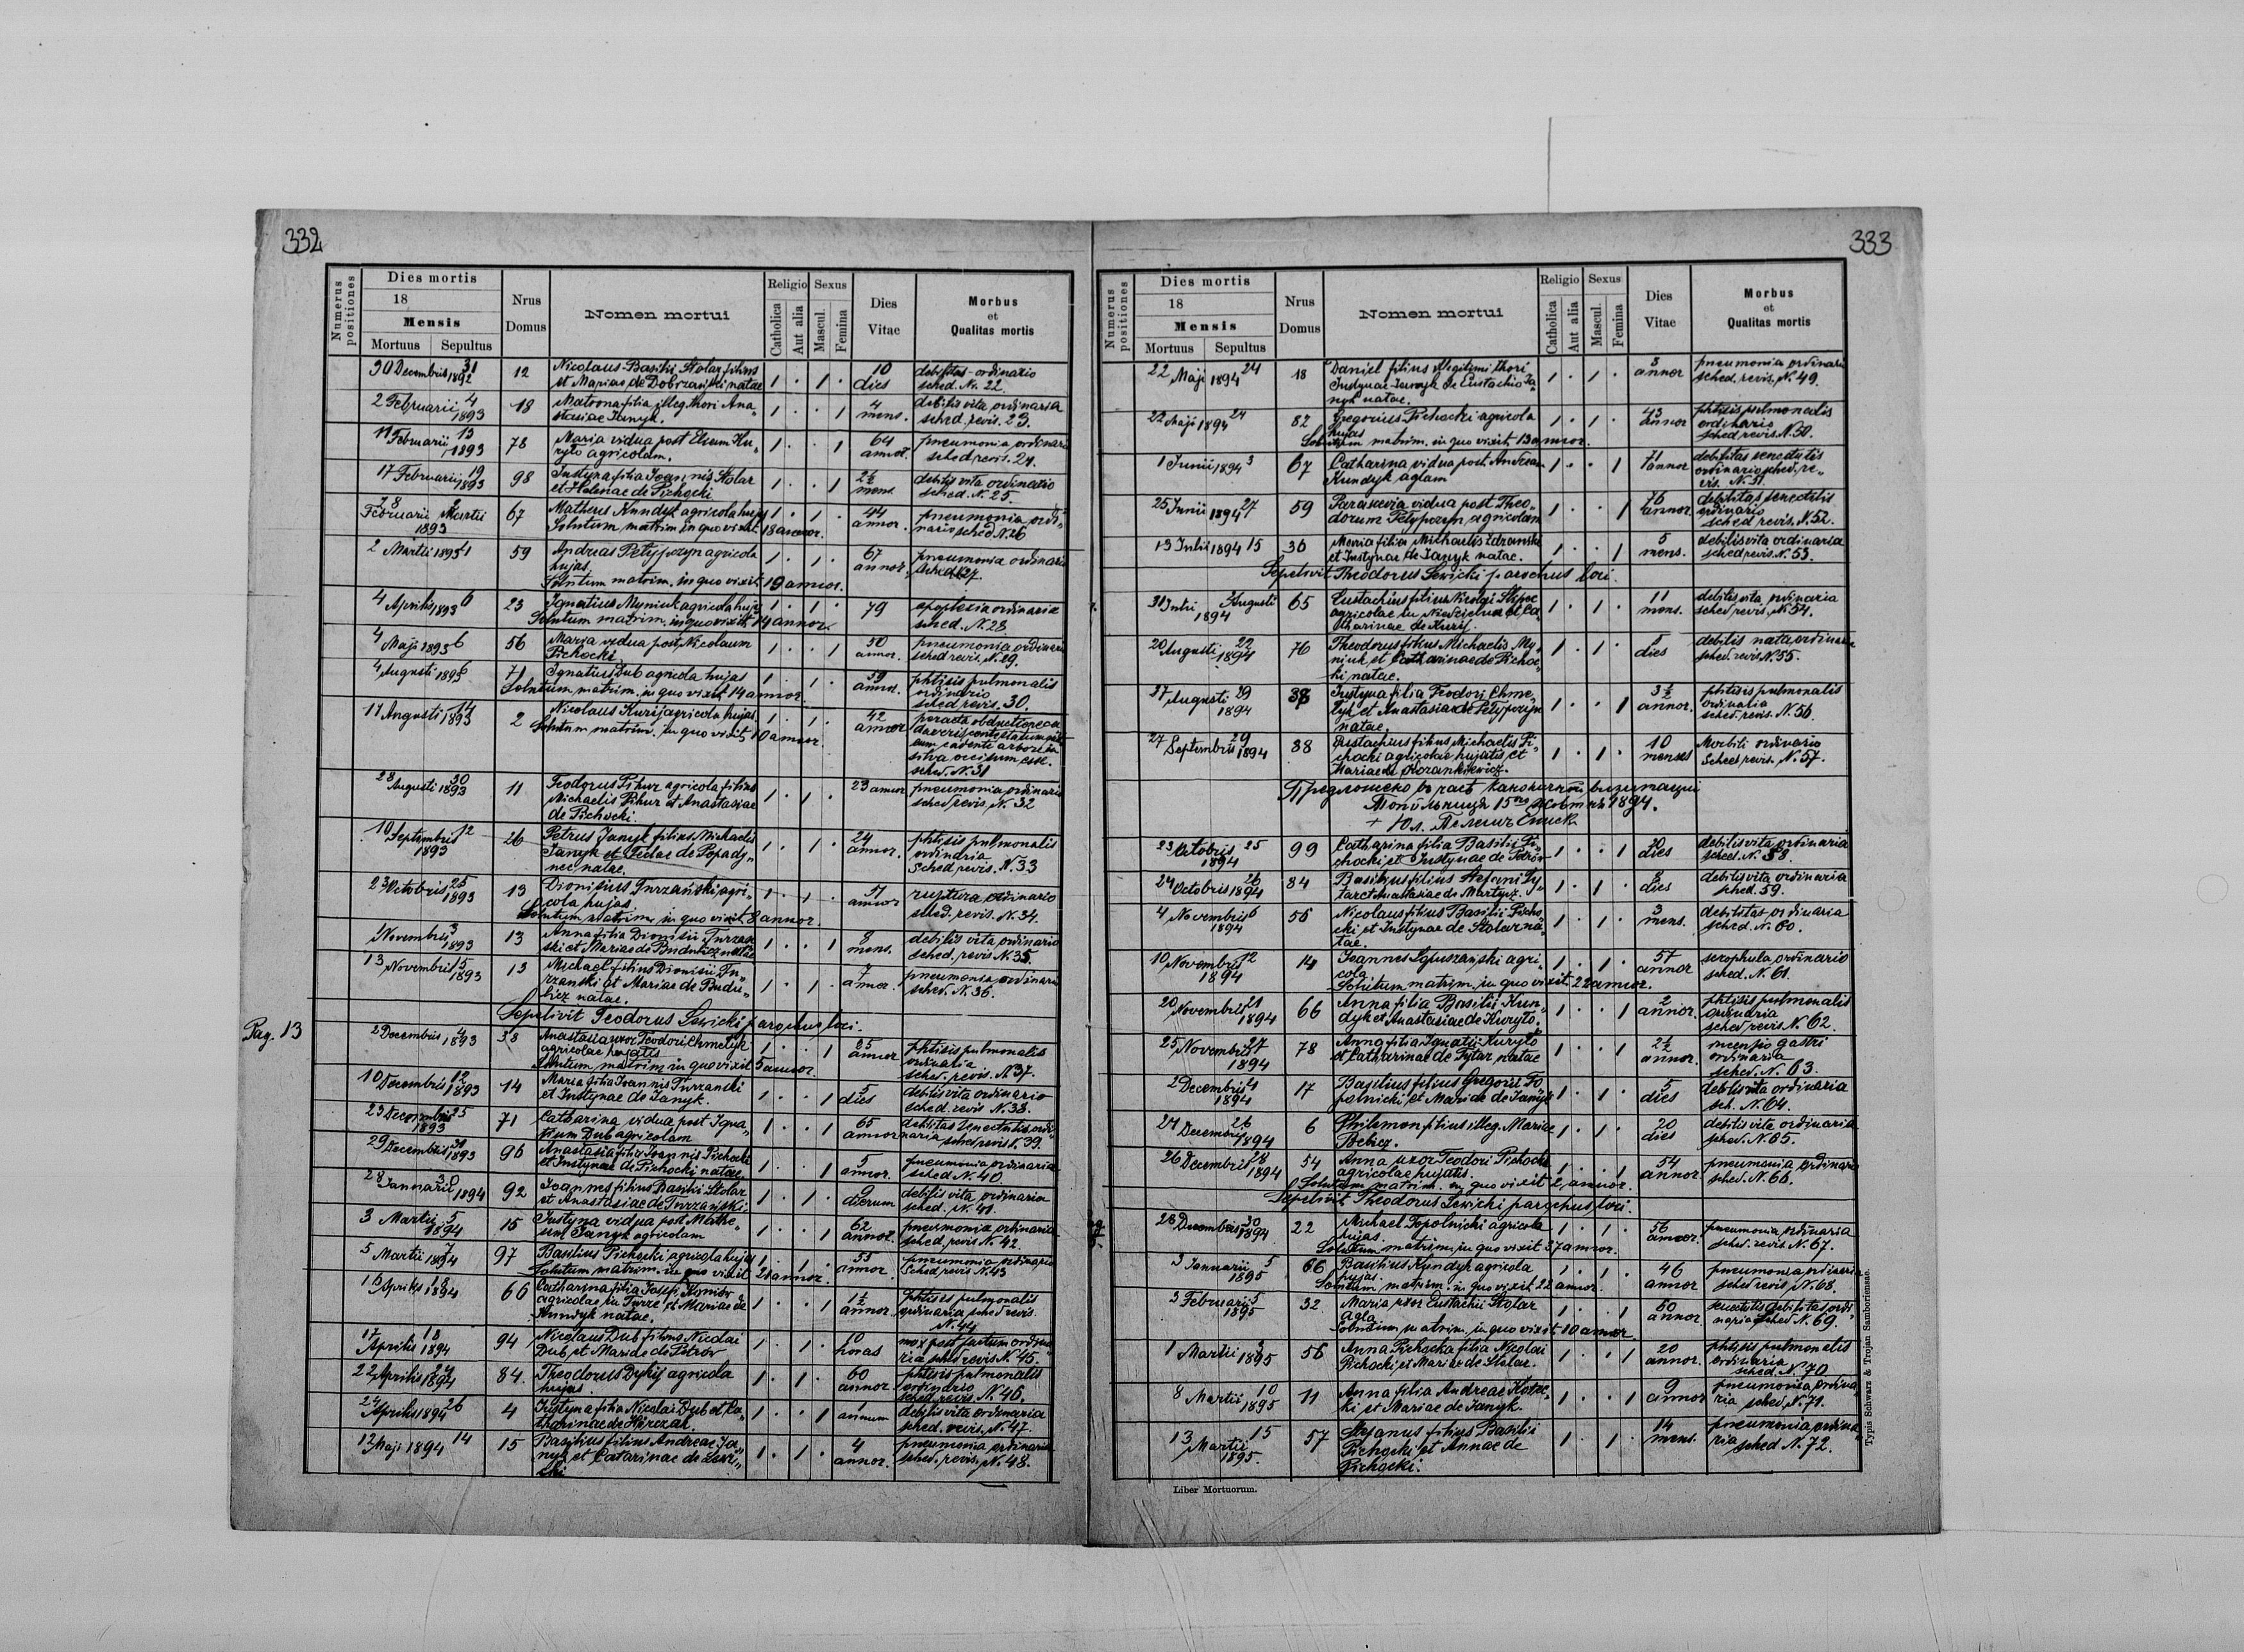 332
Numerus positiones
Dies mortis
18
Mensis
Mortuus Sepultus
Nrus Domus
Nomen mortui
Religio
Catholica
Aut alia
Sexus
Mascul.
Femina
Dies Vitae
Morbus
et
Qualitas mortis
30 Decembris 31 1892 12 Nicolaus-Basilii Stolar filius 1 . 1 . 10 dies debilitas-ordinario
et Mariae de Dobrzański natae sched. N. 22.
2 Februarii 4 1893 18 Matrona filia illeg. thori Ana„ 1 . . 1 4 mens. debilis vita ordinaria
stasiae Janyk. sched. revis. 23.
11 Februarii 13 1893 78 Maria vidua post Eliam Ku„ 1 . . 1 64 annor. pneumonia ordinaria
ryto agricolam. sched revis. 24.
17 Februarii 19 1893 98 Justyna filia Joannis Stolar 1 . . 1 2½ mens. debilis vita ordinario
et Helenae de Pichocki sched. N. 25.
28 Februarii 2 Martii 1893 67 Matheus Kundyk agricola hujus 1 . 1 . 44 annor. pneumonia ordi„
Solutum matrim. in quo vixit 18 annor. nario sched N. 26
2 Martii 1893 4 59 Andreas Petypczyn agricola 1 . 1 . 67 annor. pneumonia ordinaria
hujas. sched 27.
Solutum matrim. in quo vixit 19 annos.
4 Aprilis 1893 6 23 Ignatius Myniuk agricola hujs 1 . 1 . 79 apoplexia ordinaria
Solutum matrim. in quo vixit 14 annor. sched. N. 28.
4 Maji 1893 6 56 Maria vidua post Nicolaum 1 . . 1 50 annor. pneumonia ordinaria
Pichocki sched revis. N. 29.
4 Augusti 1893 6 71 Ignatius Dub agricola hujas 1 . 1 . 39 annor. phtisis pulmonalis
Solutum matrim. in quo vixit 14 annos. ordinario
sched revis. 30.
11 Augusti 14 1893 2 Nicolaus Kurij agricola hujas 1 . 1 . 42 annor peracta obductione ca
Solutum matrim. in quo vixit 10 annor. daveris
cadente arbore in
silva occisum esse.
sched. N. 31
28 Augusti 30 1893 11 Teodorus Pihur agricola filius 1 . 1 . 23 annor pneumonia ordinaria
Michaelis Pihur et Anastasiae sched revis. N. 32
de Pichocki.
10 Septembris 12 1893 26 Petrus Janyk filius Michaelis 1 . 1 . 24 annor. phtisis pulmonalis
Janyk et Teclae de Popady„ ordinaria
nec natae. Sched revis. N. 33
23 Octobris 25 1893 13 Dionisius Turzański agri„ 1 . 1 . 51 annor ruptura ordinario
cola hujas. sched. revis. N. 34.
Solutum matrim. in quo vixit 8 annor.
1 Novembris 3 1893 13 Anna filia Dionisii Turzań 1 . . 1 8 mens. debilis vita ordinario
ski et Mariae de Budulicz natae sched. revis N. 35.
13 Novembris 15 1893 13 Michael filius Dionisii Tu„ 1 . 1 . 7 annor. pneumonia ordinaria
rzanski et Mariae de Budu„ sched. N. 36.
licz natae.
Sepelivit Teodorus Lewicki parochus loci.
Pag. 13
2 Decembris 4 1893 38 Anastasia uxor Teodori Chmelyk 1 . . 1 25 annor phtisis pulmonalis
agricolae hujatis ordinaria
Solutum matrim in quo vixit 5 annor. sched. revis. N 37.
10 Decembris 12 1893 14 Maria filia Joannis Turzanski 1 . . 1 5 dies debilis vita ordinario
et Justynae de Janyk. sched. revis N. 38.
23 Decembris 25 1893 71 Catharina vidua post Igna„ 1 . . 1 65 annor debilitas senectutis ordi„
tium Dub agricolam naria sched revis N. 39.
29 Decembris 31 1893 96 Anastasia filia Joannis Pichocki 1 . . 1 5 annor. pneumonia ordinaria
et Justynae de Pichocki natae. sched N. 40.
28 Januarii 30 1894 92 Joannes filius Basilii Stolar 1 . 1 . 9 dierum debilis vita ordinaria
et Anastasiae de Turzański. sched. N. 41.
3 Martii 5 1894 15 Justyna vidua post Mathe„ 1 . . 1 62 annor. pneumonia ordinaria
um Janyk agricolam sched. revis N. 42.
5 Martii 7 1894 97 Basilius Pichocki agricola hujas 1 . 1 . 53 annor pneumonia ordinario
Solutum matrim. in quo vixit 21 annor. Sched revis N. 43
16 Aprilis 18 1894 66 Catharina filia Josefi Komiter 1 . . 1 1½ annor. phtisis pulmonalis
agricolae in Turze et Mariae de ordinaria sched revis.
Kundyk natae. N. 44
17 Aprilis 18 1894 94 Nicolaus Dub filius Nicolai 1 . 1 . 10 horas mox post partum ordina„
Dub et Mariae de Petrów ria sched revis N. 45.
22 Aprilis 24 1894 84. Theodorus Dykij agricola 1 . 1 . 60 annor. phtisis pulmonalis
hujas. ordinario
sched revis. N. 46.
24 Aprilis 1894 26 4 Justyna filia Nicolai Dub et Ca„ 1 . . 1 1 annum debilis vita ordinaria
tharinae de Hirczak. sched. revis. N. 47.
12 Maji 1894 14 15 Basilius filius Andreae Ja„ 1 . 1 . 4 annor. pneumonia ordinaria
nyk et Catarinae de Lewi„ sched. revis. N. 48.
cki
333
Numerus positiones
Dies mortis
18
Mensis
Mortuus Sepultus
Nrus Domus
Nomen mortui
Religio
Catholica
Aut alia
Sexus
Mascul.
Femina
Dies Vitae
Morbus
et
Qualitas mortis
22 Maji 1894 24 18 Daniel filius illegitimi thori 1 . 1 . 3 annor pneumonia ordinaria
Justynae Janyk de Eustachio Ja„ sched. revis. N. 49.
nyk natae.
22 Maji 1894 24 82 Gregorius Pichocki agricola 1 . 1 . 43 annor phtisis pulmonalis
hujas ordinario
Solutum matrim. in quo vixit 13 annor. sched revis. N. 50.
1 Junii 1894 3 67 Catharina vidua post Andream 1 . . 1 71 annor debilitas senectutis
Kundyk aglam ordinario sched. re„
vis. N. 51.
25 Junii 1894 27 59 Parascevia vidua post Theo„ 1 . . 1 76 annor debilitas senectutis
dorum Petypczyn agricolam ordinario
sched revis. N. 52.
13 Julii 1894 15 36 Maria filia Michaelis Zdranski 1 . . 1 5 mens. debilis vita ordinaria
et Justynae de Janyk natae. sched revis. N. 53.
Sepelivit Theodorus Lewicki parochus loci.
31 Julii Augusti 1894 65 Eustachius filius Nicolai 1 . 1 . 11 mens. debilis vita ordinaria
agricolae in et Ca sched revis. N. 54.
tharinae de Kurij.
20 Augusti 22 1894 76 Theodorus filius Michaelis My„ 1 . 1 . dies debilis nata ordinaria
niuk et Catharinae de Picho„ sched. revis N. 55.
ki natae.
27 Augusti 29 1894 38 Justyna filia Teodori Chme„ 1 . . 1 3½ annor. phtisis pulmonalis
lyk et Anastasiae de Petypczyn ordinalia
natae. sched. revis. N. 56.
27 Septembris 29 1894 88 Eustachius filius Michaelis Pi„ 1 . 1 . 10 menses Morbili ordinario
chocki agricolae hujatis et Sched revis. N. 57.
Mariae de Korankiewicz.
Предложено въ часѣ каноничной визитаціи
15го жовтня 1894.
+ Юл. Пелешъ Епископ
23 Octobris 25 1894 99 Catharina filia Basilii Pi„ 1 . . 1 20 dies debilis vita ordinaria
chocki et Justynae de Petrów sched. N. 58.
24 Octobris 26 1894 84 Basilius filius Stefani Ty„ 1 . 1 . 8 dies debilis vita ordinaria
tar et Anastasiae de Martycz. sched. 59.
4 Novembris 6 1894 56 Nicolaus filius Basilii Picho„ 1 . 1 . 3 mens. debilitas ordinaria
cki et Justynae de Stolar na„ sched. N. 60.
tae.
10 Novembris 12 1894 14 Joannes agri„ 1 . 1 . 57 annor scrophula ordinario
cola sched. N. 61.
Solutum matrim. in quo vixit 22 annor.
20 Novembris 21 1894 66 Anna filia Basilii Kun„ 1 . . 1 2 annor. phtisis pulmonalis
dyk et Anastasiae de Kuryto. ordinaria
sched revis N. 62.
25 Novembris 27 1894 78 Anna filia Ignatii Kuryto 1 . . 1 2½ annor. incensio gastri
et Catharinae de Tytar natae ordinaria
sched. N. 63.
2 Decembris 4 1894 17 Basilius filius Gregorii To„ 1 . 1 . 5 dies debilis vita ordinaria
polnicki et Mariae de Janyk sch. N. 64.
24 Decembris 26 1894 6 Philemon filius illeg. Mariae 1 . 1 . 20 dies debilis vita ordinaria
Bebicz. sched. N. 65.
26 Decembris 28 1894 54 Anna uxor Teodori Pichocki 1 . . 1 54 annor pneumonia ordinaria
agricolae hujatis. sched. N. 66.
Solutum matrim. in quo vixit annor.
Sepelivit Theodorus Lewicki parochus loci.
28 Decembris 30 1894 22 Michael Topolnicki agricola 1 . 1 . 56 annor. pneumonia ordinaria
hujas. sched. revis N. 67.
Solutum matrim. in quo vixit 37 annor.
3 Januarii 5 1895 66 Basilius Kundyk agricola 1 . 1 . 46 annor pneumonia ordinaria
hujas. sched revis N. 68.
Solutum matrim. in quo vixit 22 annor.
3 Februarii 5 1895 32 Maria uxor Eustachii Stolar 1 . . 1 60 annor senectutis debilitas ordi„
agla naria sched N. 69.
Solutum matrim. in quo vixit 10 annor.
1 Martii 3 1895 56 Anna Pichocka filia Nicolai 1 . . 1 20 annor. phtisis pulmonalis
Pichocki et Mariae de Stolar. ordinaria
sched. N. 70
8 Martii 10 1895 11 Anna filia Andreae 1 . . 1 9 annor pneumonia ordina
ki et Mariae de Janyk. ria sched. N. 71.
13 Martii 15 1895. 57 Stefanus filius Basilii 1 . 1 . 14 mens. pneumonia ordina„
Pichocki et Annae de ria sched N. 72.
Pichocki.
Liber Mortuorum.
Typis Schwarz & Trojan Samboriensae.